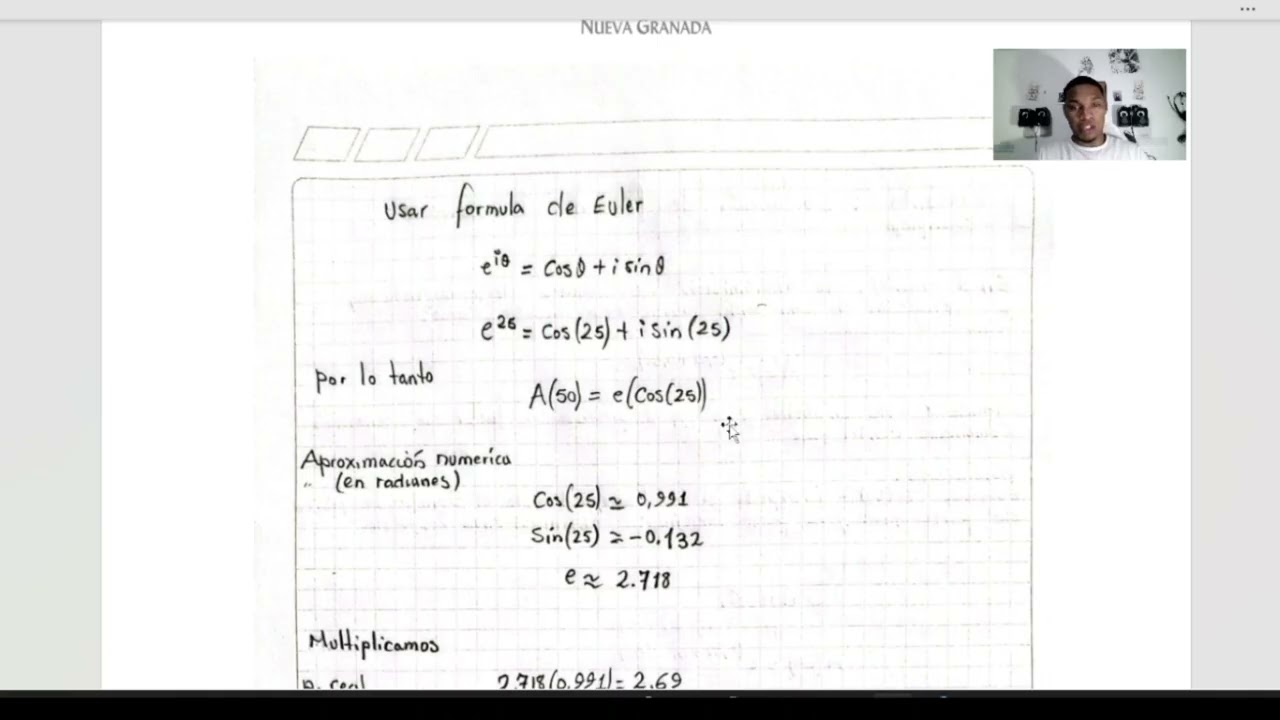 NUEVA GRANADA
Usar formula de Euler
e^iθ = Cosθ + i sinθ
e^25 = Cos(25) + i Sin (25)
por lo tanto
A(50) = e(Cos(25))
Aproximación numerica
(en radianes)
Cos(25) ≃ 0,991
Sin(25) ≃ -0,132
e ≈ 2.718
Multiplicamos
p. real 2.718(0.991) = 2.69